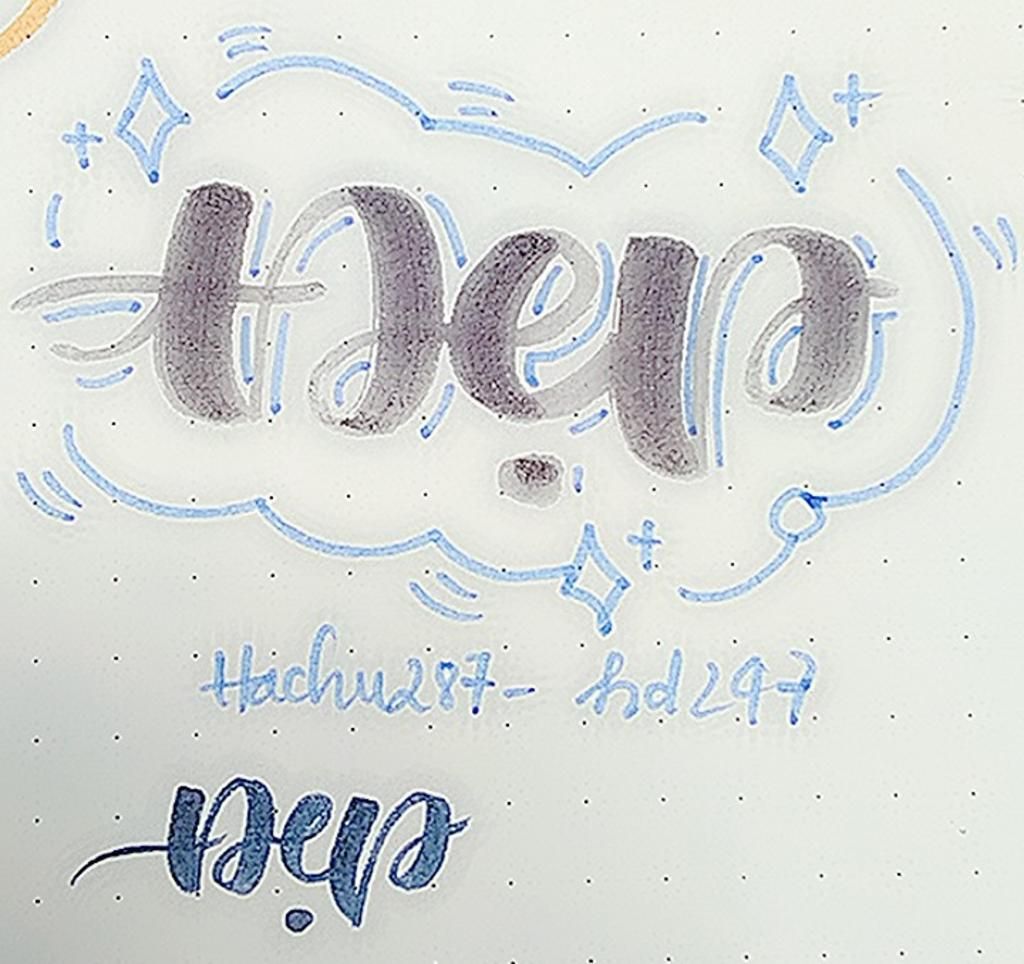 Đẹp
Hachu287- hd247
Đẹp